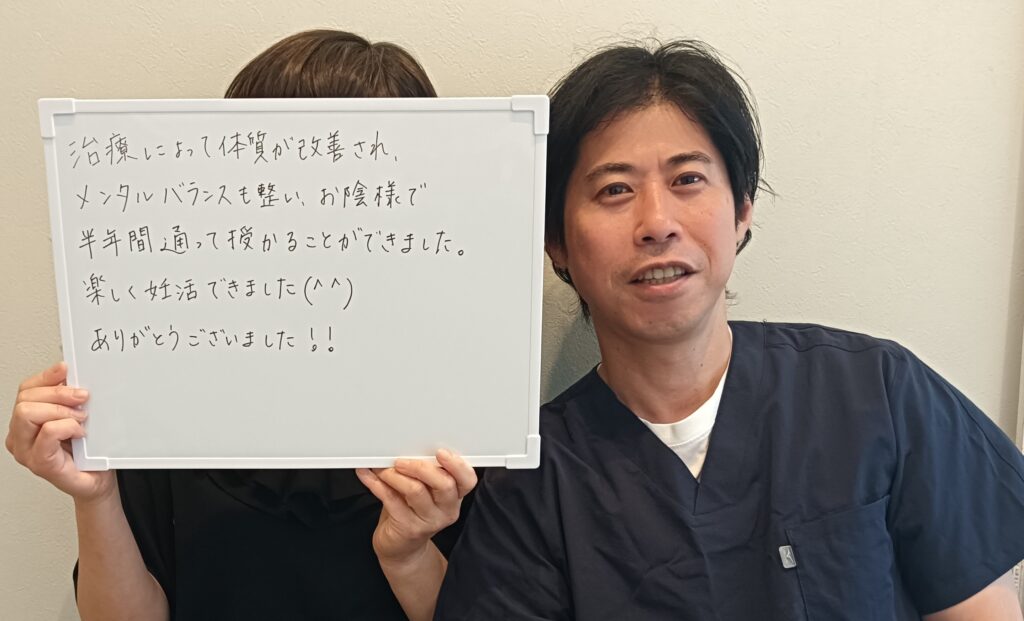 治療によって体質が改善され、
メンタルバランスも整い、お陰様で
半年間通って授かることができました。
楽しく妊活できました(^^)
ありがとうございました!!